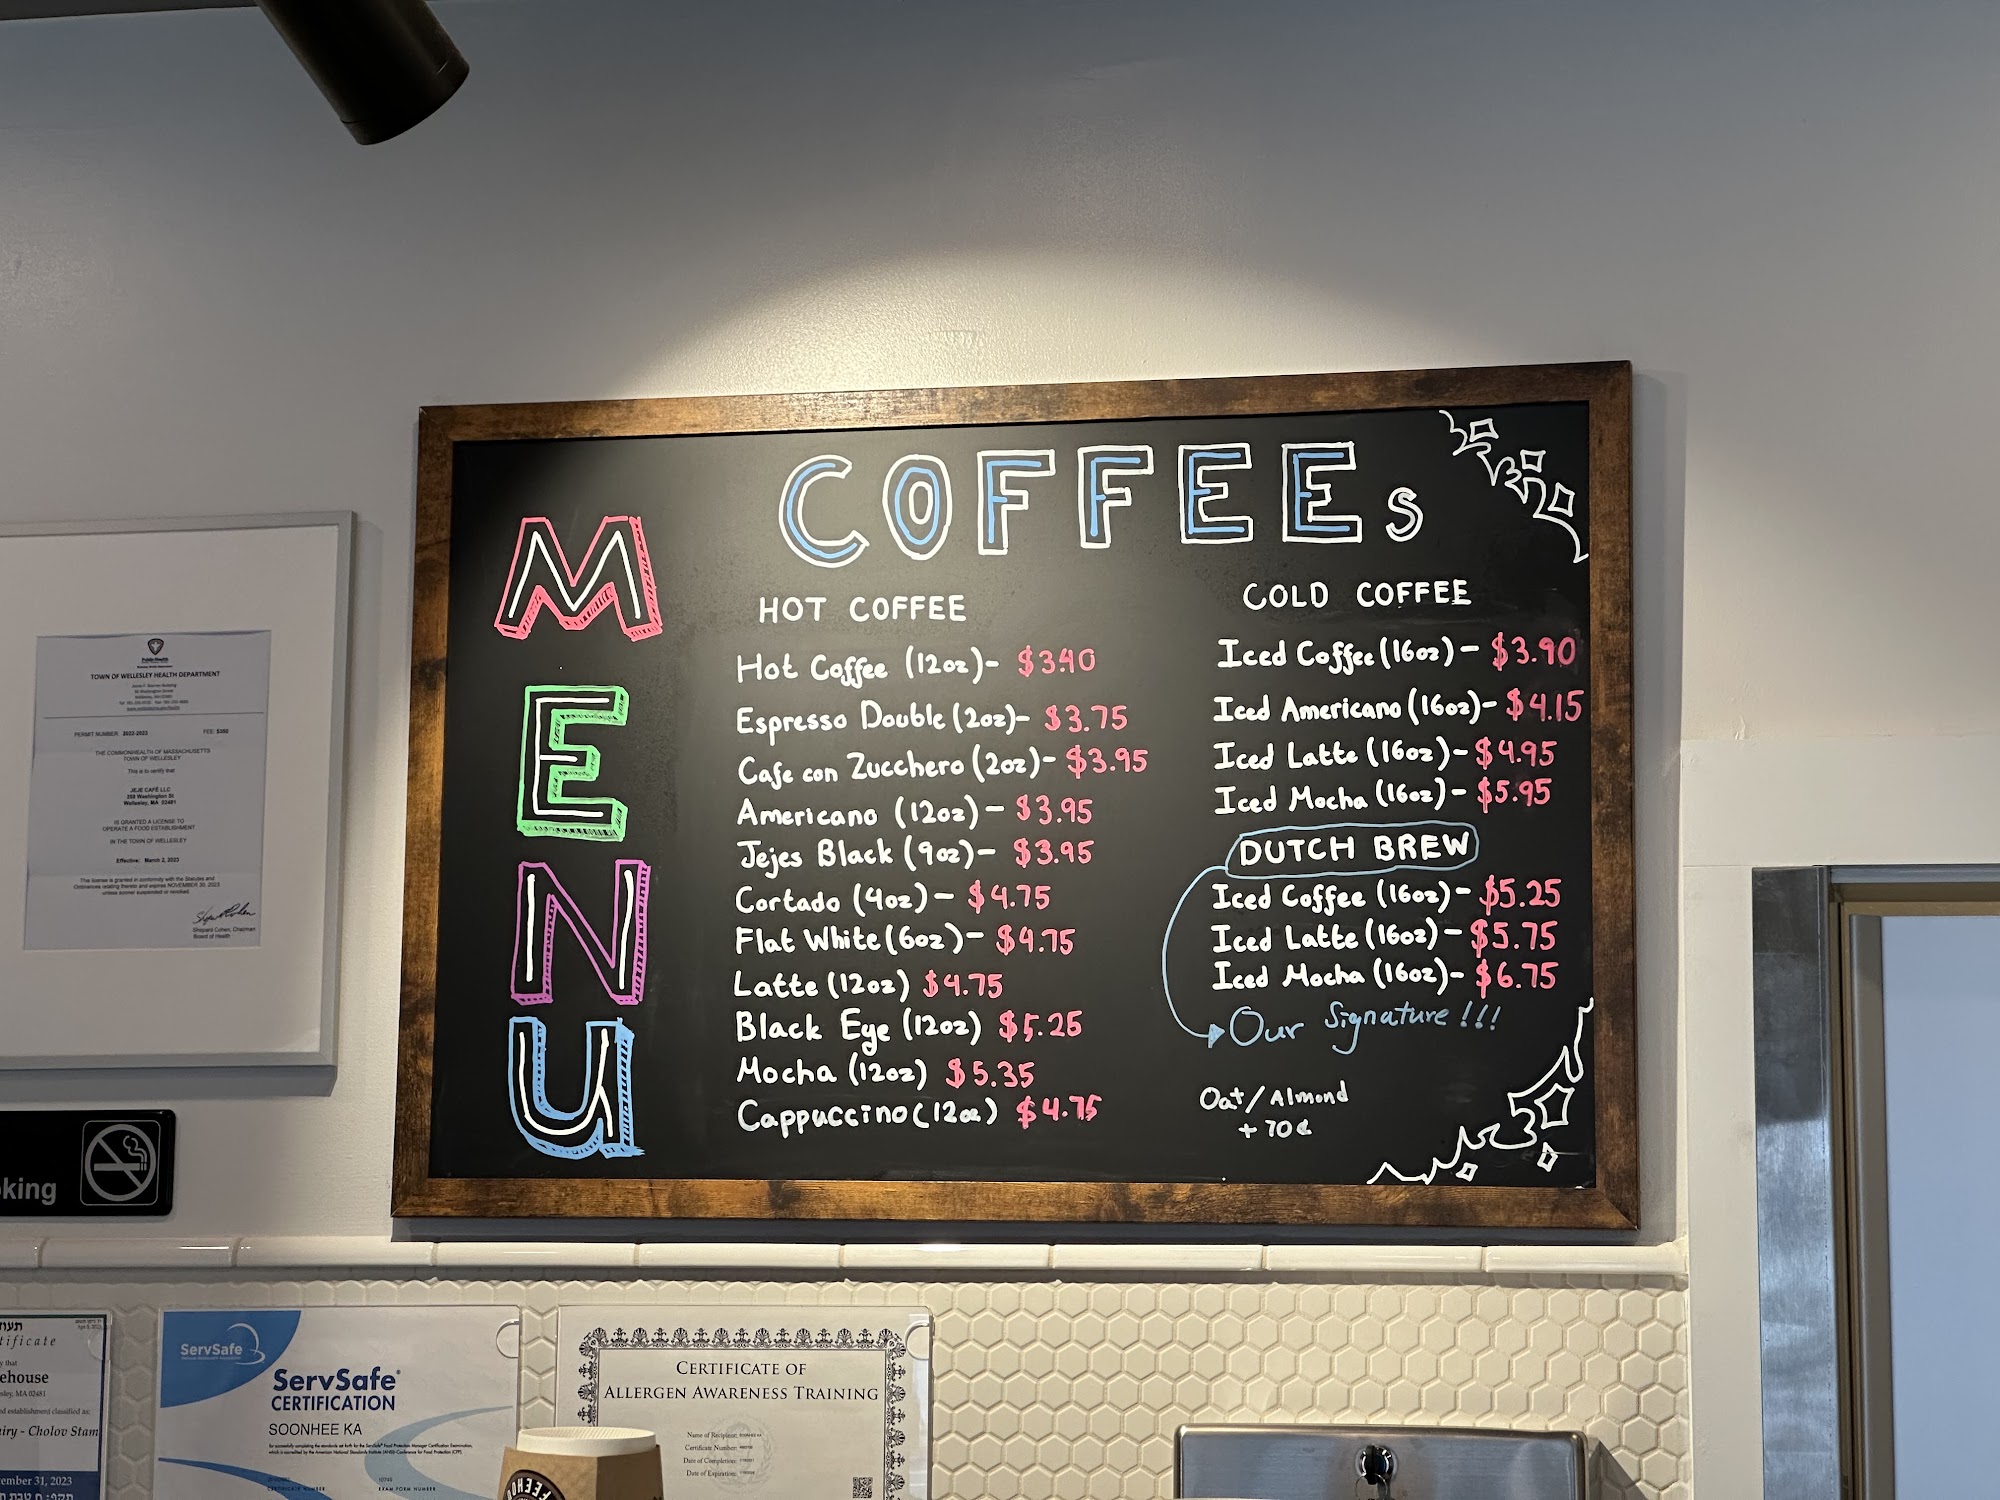 COFFEEs
MENU
HOT COFFEE
Hot Coffee (12oz)- $3.40
Espresso Double (2oz)- $3.75
Cafe con Zucchero (2oz)- $3.95
Americano (12oz)- $3.95
Jejes Black (9oz)- $3.95
Cortado (4oz)- $4.75
Flat White (6oz)- $4.75
Latte (12oz) $4.75
Black Eye (12oz) $5.25
Mocha (12oz) $5.35
Cappuccino (12oz) $4.75
COLD COFFEE
Iced Coffee (16oz)- $3.90
Iced Americano (16oz)- $4.15
Iced Latte (16oz)- $4.95
Iced Mocha (16oz)- $5.95
DUTCH BREW
Iced Coffee (16oz)- $5.25
Iced Latte (16oz)- $5.75
Iced Mocha (16oz)- $6.75
Our Signature!!!
Oat/Almond
+70¢
TOWN OF WELLESLEY HEALTH DEPARTMENT
PERMIT NUMBER 2022-2023 FEE: $350
THE COMMONWEALTH OF MASSACHUSETTS
TOWN OF WELLESLEY
This is to certify that
JEJE CAFÉ LLC
Wellesley, MA 02481
IS GRANTED A LICENSE TO
OPERATE A FOOD ESTABLISHMENT
IN THE TOWN OF WELLESLEY
Effective: March 2, 2023
Board of Health
king
tificate
ehouse
sley, MA 02481
iry - Cholov Stam
ember 31, 2023
ServSafe
ServSafe®
CERTIFICATION
SOONHEE KA
CERTIFICATE NUMBER
EXAM FORM NUMBER
CERTIFICATE OF
ALLERGEN AWARENESS TRAINING
Name of Recipient:
Certificate Number:
Date of Completion:
Date of Expiration: